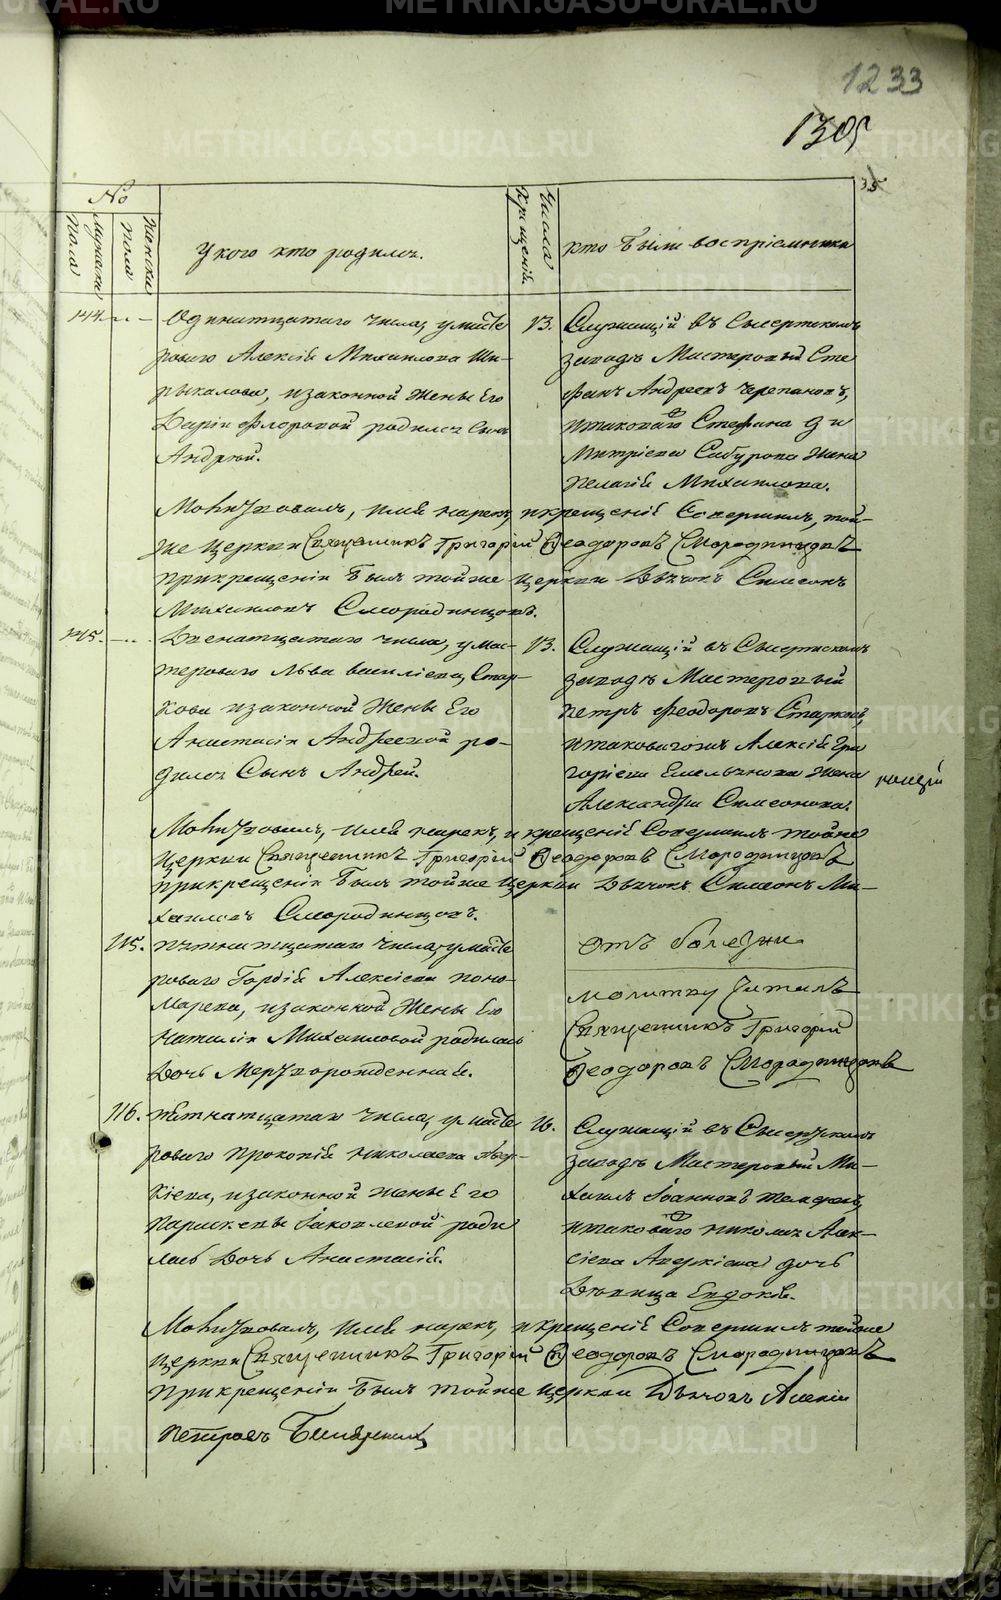 1233
1305
35
№
Мужеска Пола
Женска Пола
У кого кто родился.
Числа Крещенiй.
кто были воспрiемники
144.
Одинатцатаго числа, у масте
роваго Алексiя Михаилова Ши-
рыкалова, изаконной жены Его
Дарiи Флоровой родился Сынъ
Андрей.
13.
Служащiй въ Сысертскомъ
заводѣ Мастеровый Сте
фанъ Андреевъ Черепановъ,
итаковаго Стефана Ди
митрiева Сабурова жена
Пелагiя Михаилова.
Молитвовалъ, имя нарекъ, икрещенiе Совершилъ, той-
же Церкви Священникъ Григорiй Феодоровъ Смородинцовъ
прикрещенiи былъ тойже церкви Дьячокъ Симеонъ
Михаиловъ Смородинцовъ.
145.
Двенатцатаго числа, у мас-
тероваго Льва Василiева Стар-
кова изаконной жены Его
Анастасiи Андреевой ро-
дился Сынъ Андрей.
13.
Служащiй въ Сысертскомъ
заводѣ Мастеровый
Петръ Феодоровъ Старковъ,
итаковагожъ Алексiя Гри
горiева Емельянова жена
Александра Симеонова.
Молитвовалъ, имя нарекъ, и крещенiе Совершилъ тойже
Церкви Священникъ Григорiй Феодоровъ Смородинцовъ
прикрещенiи былъ тойже Церкви Дьячокъ Симеонъ Ми-
хаиловъ Смородинцовъ.
115.
Пятнатцатаго числа, у масте
роваго Гордiя Алексiева Поно-
марева, изаконной жены Его
Наталiи Михаиловой родилась
Дочь Мертворожденная.
отъ болезни
молитву читалъ
Священникъ Григорiй
Феодоровъ Смородинцовъ
116.
Пятнатцатаго числа, у масте
роваго Прокопiя Николаева Авер-
кiева, изаконной жены Его
Парасковы Iаковлевой роди
лась Дочь Анастасiя.
16.
Служащiй въ Сысертскомъ
заводѣ Мастеровый Ми-
хаилъ Iоанновъ
итаковаго Николая Алек-
сiева Аверкiева дочь
Девица Евдокiя.
Молитвовалъ, имя нарекъ, и крещенiе Совершилъ тойже
церкви Священникъ Григорiй Феодоровъ Смородинцовъ
прикрещенiи былъ тойже церкви Дьячокъ Алексiй
Петровъ